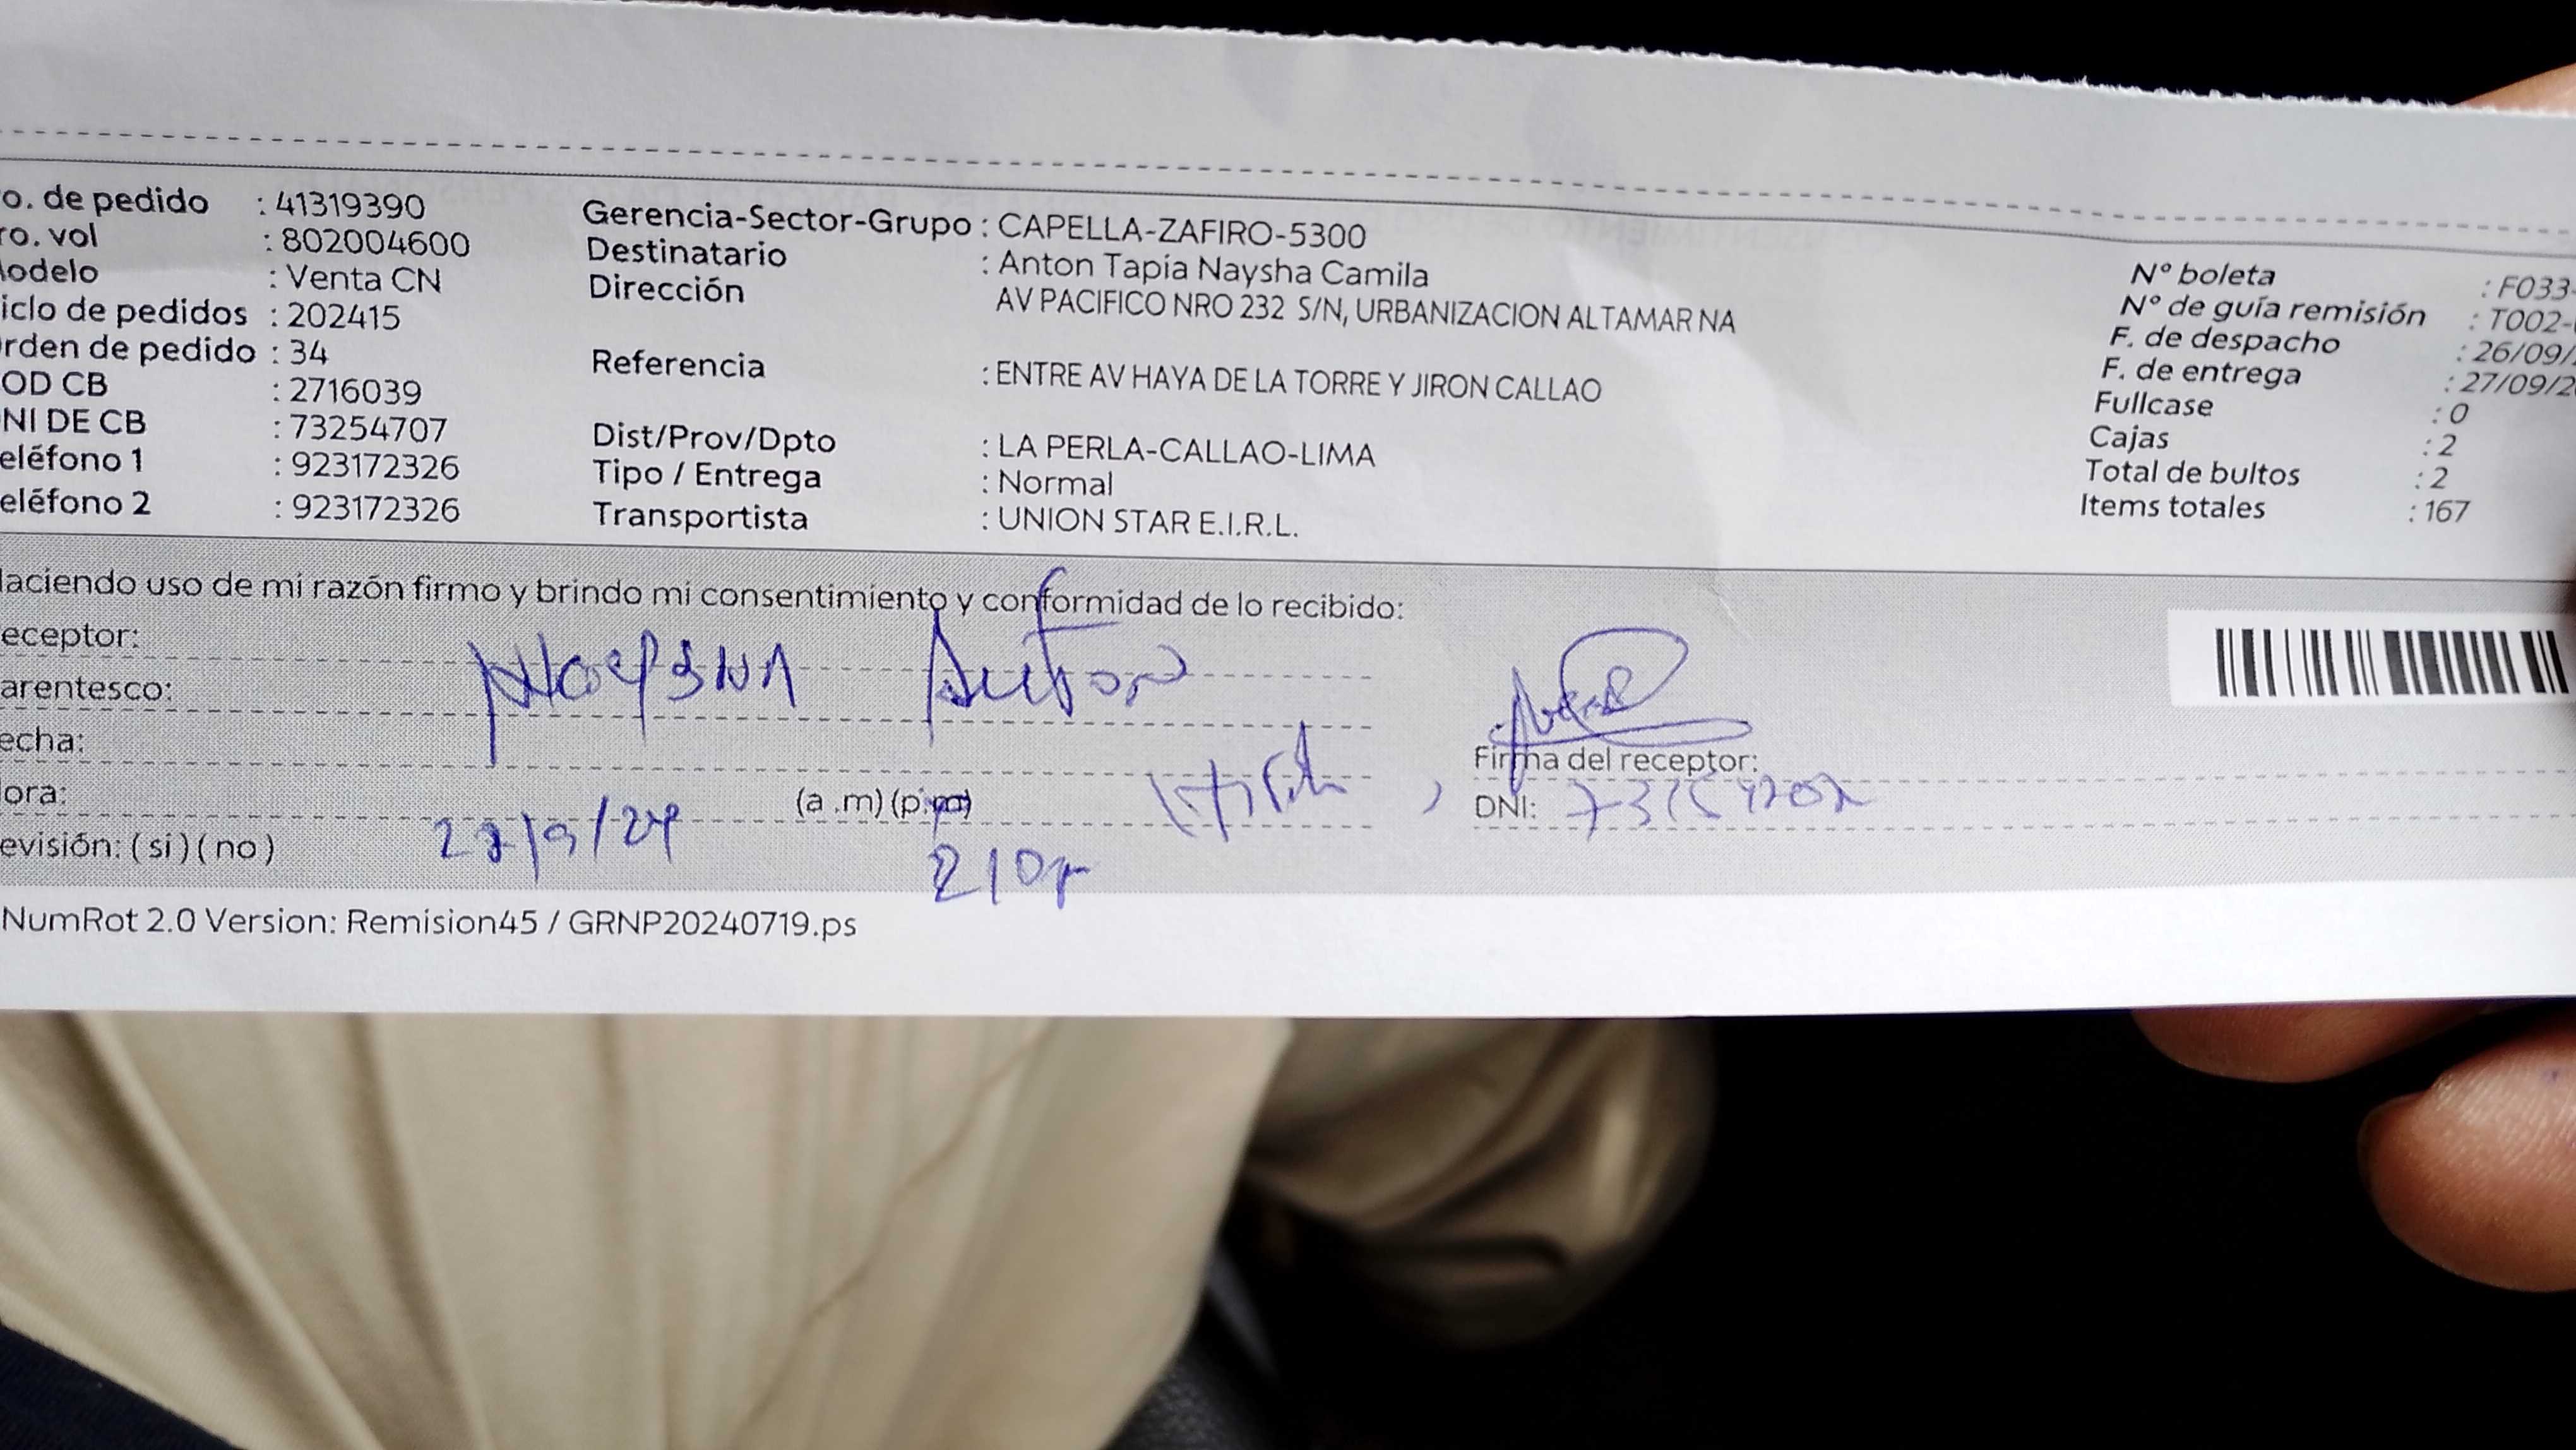 o. de pedido : 41319390
ro. vol : 802004600
lodelo : Venta CN
iclo de pedidos : 202415
rden de pedido : 34
OD CB : 2716039
NI DE CB : 73254707
eléfono 1 : 923172326
eléfono 2 : 923172326
Gerencia-Sector-Grupo : CAPELLA-ZAFIRO-5300
Destinatario : Anton Tapia Naysha Camila
Dirección AV PACIFICO NRO 232 S/N, URBANIZACION ALTAMAR NA
Referencia : ENTRE AV HAYA DE LA TORRE Y JIRON CALLAO
Dist/Prov/Dpto : LA PERLA-CALLAO-LIMA
Tipo / Entrega : Normal
Transportista : UNION STAR E.I.R.L.
N° boleta : F033-
N° de guía remisión : T002-
F. de despacho : 26/09/
F. de entrega : 27/09/2
Fullcase : 0
Cajas : 2
Total de bultos : 2
Items totales : 167
laciendo uso de mi razón firmo y brindo mi consentimiento y conformidad de lo recibido:
eceptor: Naysha Anton
arentesco:
echa:
ora: (a .m) (p.m) 27/9/24
evisión: ( si ) ( no ) 210p
Firma del receptor:
DNI:
NumRot 2.0 Version: Remision45 / GRNP20240719.ps